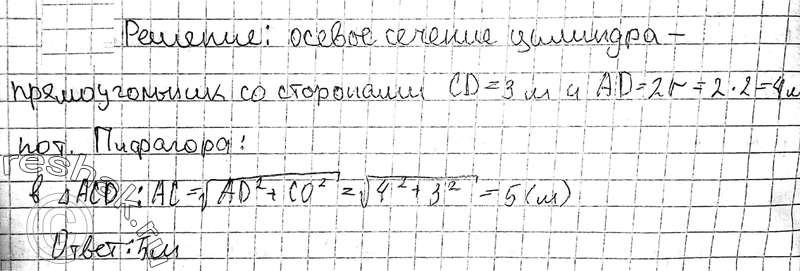 Решение: осевое сечение цилиндра –
прямоугольник со сторонами CD = 3 м и AD = 2r = 2·2 = 4 м
по т. Пифагора:
в △ACD: AC = √(AD² + CD²) = √(4² + 3²) = 5 (м)
Ответ: 5 м
reshak.ru